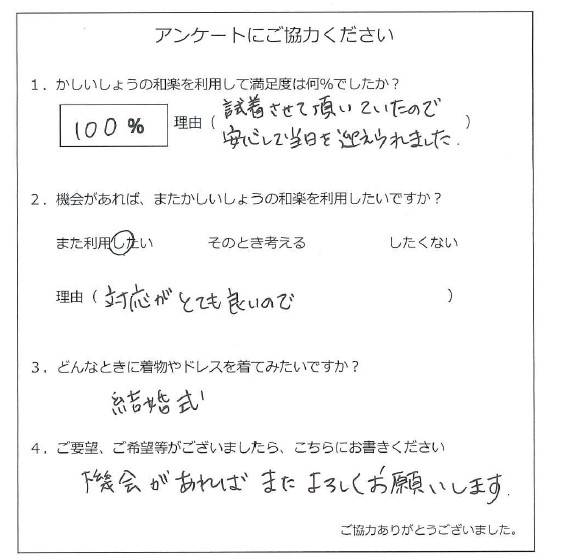 アンケートにご協力ください
1．かしいしょうの和楽を利用して満足度は何％でしたか？
100 % 理由（ 試着させて頂いていたので
安心して当日を迎えられました． ）
2．機会があれば、またかしいしょうの和楽を利用したいですか？
また利用したい そのとき考える したくない
理由（ 対応がとても良いので ）
3．どんなときに着物やドレスを着てみたいですか？
結婚式
4．ご要望、ご希望等がございましたら、こちらにお書きください
機会があればまたよろしくお願いします．
ご協力ありがとうございました。